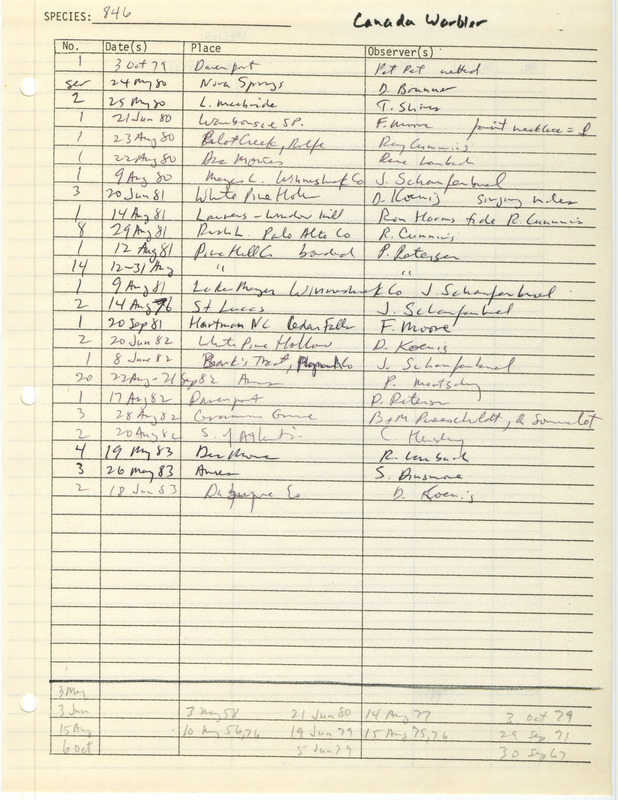 SPECIES: 846 Canada Warbler
No. Date(s) Place Observer(s)
1 3 Oct 79 Davenport Pet Pet netted
24 May 80 Nora Springs D. Brunner
2 25 May 80 L. Macbride T. Shires
1 21 Jun 80 SP. F. Moore faint necklace =
1 23 Aug 80 Pilot Creek, Rolfe Ray Cummins
1 22 Aug 80 Des Moines
1 9 Aug 80 Meyer L. Winneshiek Co J. Schaufenbuel
3 20 Jun 81 White Pine Hollow D. Koenig singing males
1 14 Aug 81 Laurens - window kill Ron Harms fide R. Cummins
8 29 Aug 81 Rush L. Palo Alto Co R. Cummins
1 12 Aug 81 Pine Hill Co banded P. Petersen
14 12-31 Aug " "
1 9 Aug 81 Lake Meyer Winneshiek Co J. Schaufenbuel
2 14 Aug St Lucas J. Schaufenbuel
1 20 Sep 81 Hartman NC Cedar Falls F. Moore
2 20 Jun 82 White Pine Hollow D. Koenig
1 8 June 82 Tract, Co J. Schaufenbuel
20 22 Aug - 21 Sep 82 Ames P. Martsching
1 17 Aug 82 Davenport P. Petersen
3 28 Aug 82 Grove B+M Proescholdt,
2 20 Aug 82 S. of
4 19 May 83 Des Moines
3 26 May 83 Ames S. Dinsmore
2 18 Jun 83 Dubuque Co D. Koenig
3 May
3 Jun 3 May 58 21 Jun 80 14 Aug 77 3 Oct 79
15 Aug 10 May 56,76 19 Jun 79 15 Aug 75,76 29 Sep 71
6 Oct 5 Jun 79 30 Sep 67